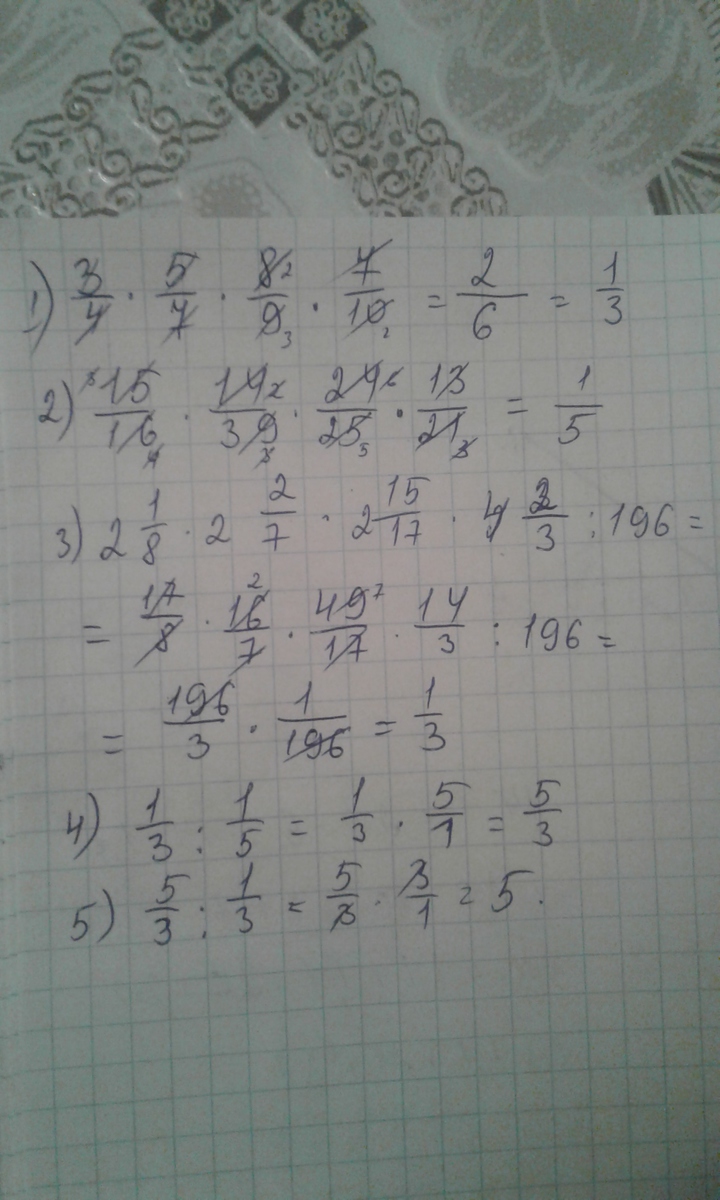 1) 3/4 · 5/7 · 8/9 · 7/10 = 2/6 = 1/3
2) 15/16 · 14/39 · 24/25 · 13/21 = 1/5
3) 2 1/8 · 2 2/7 · 2 15/17 · 4 2/3 : 196 =
= 17/8 · 16/7 · 49/17 · 14/3 : 196 =
= 196/3 · 1/196 = 1/3
4) 1/3 : 1/5 = 1/3 · 5/1 = 5/3
5) 5/3 : 1/3 = 5/3 · 3/1 = 5.